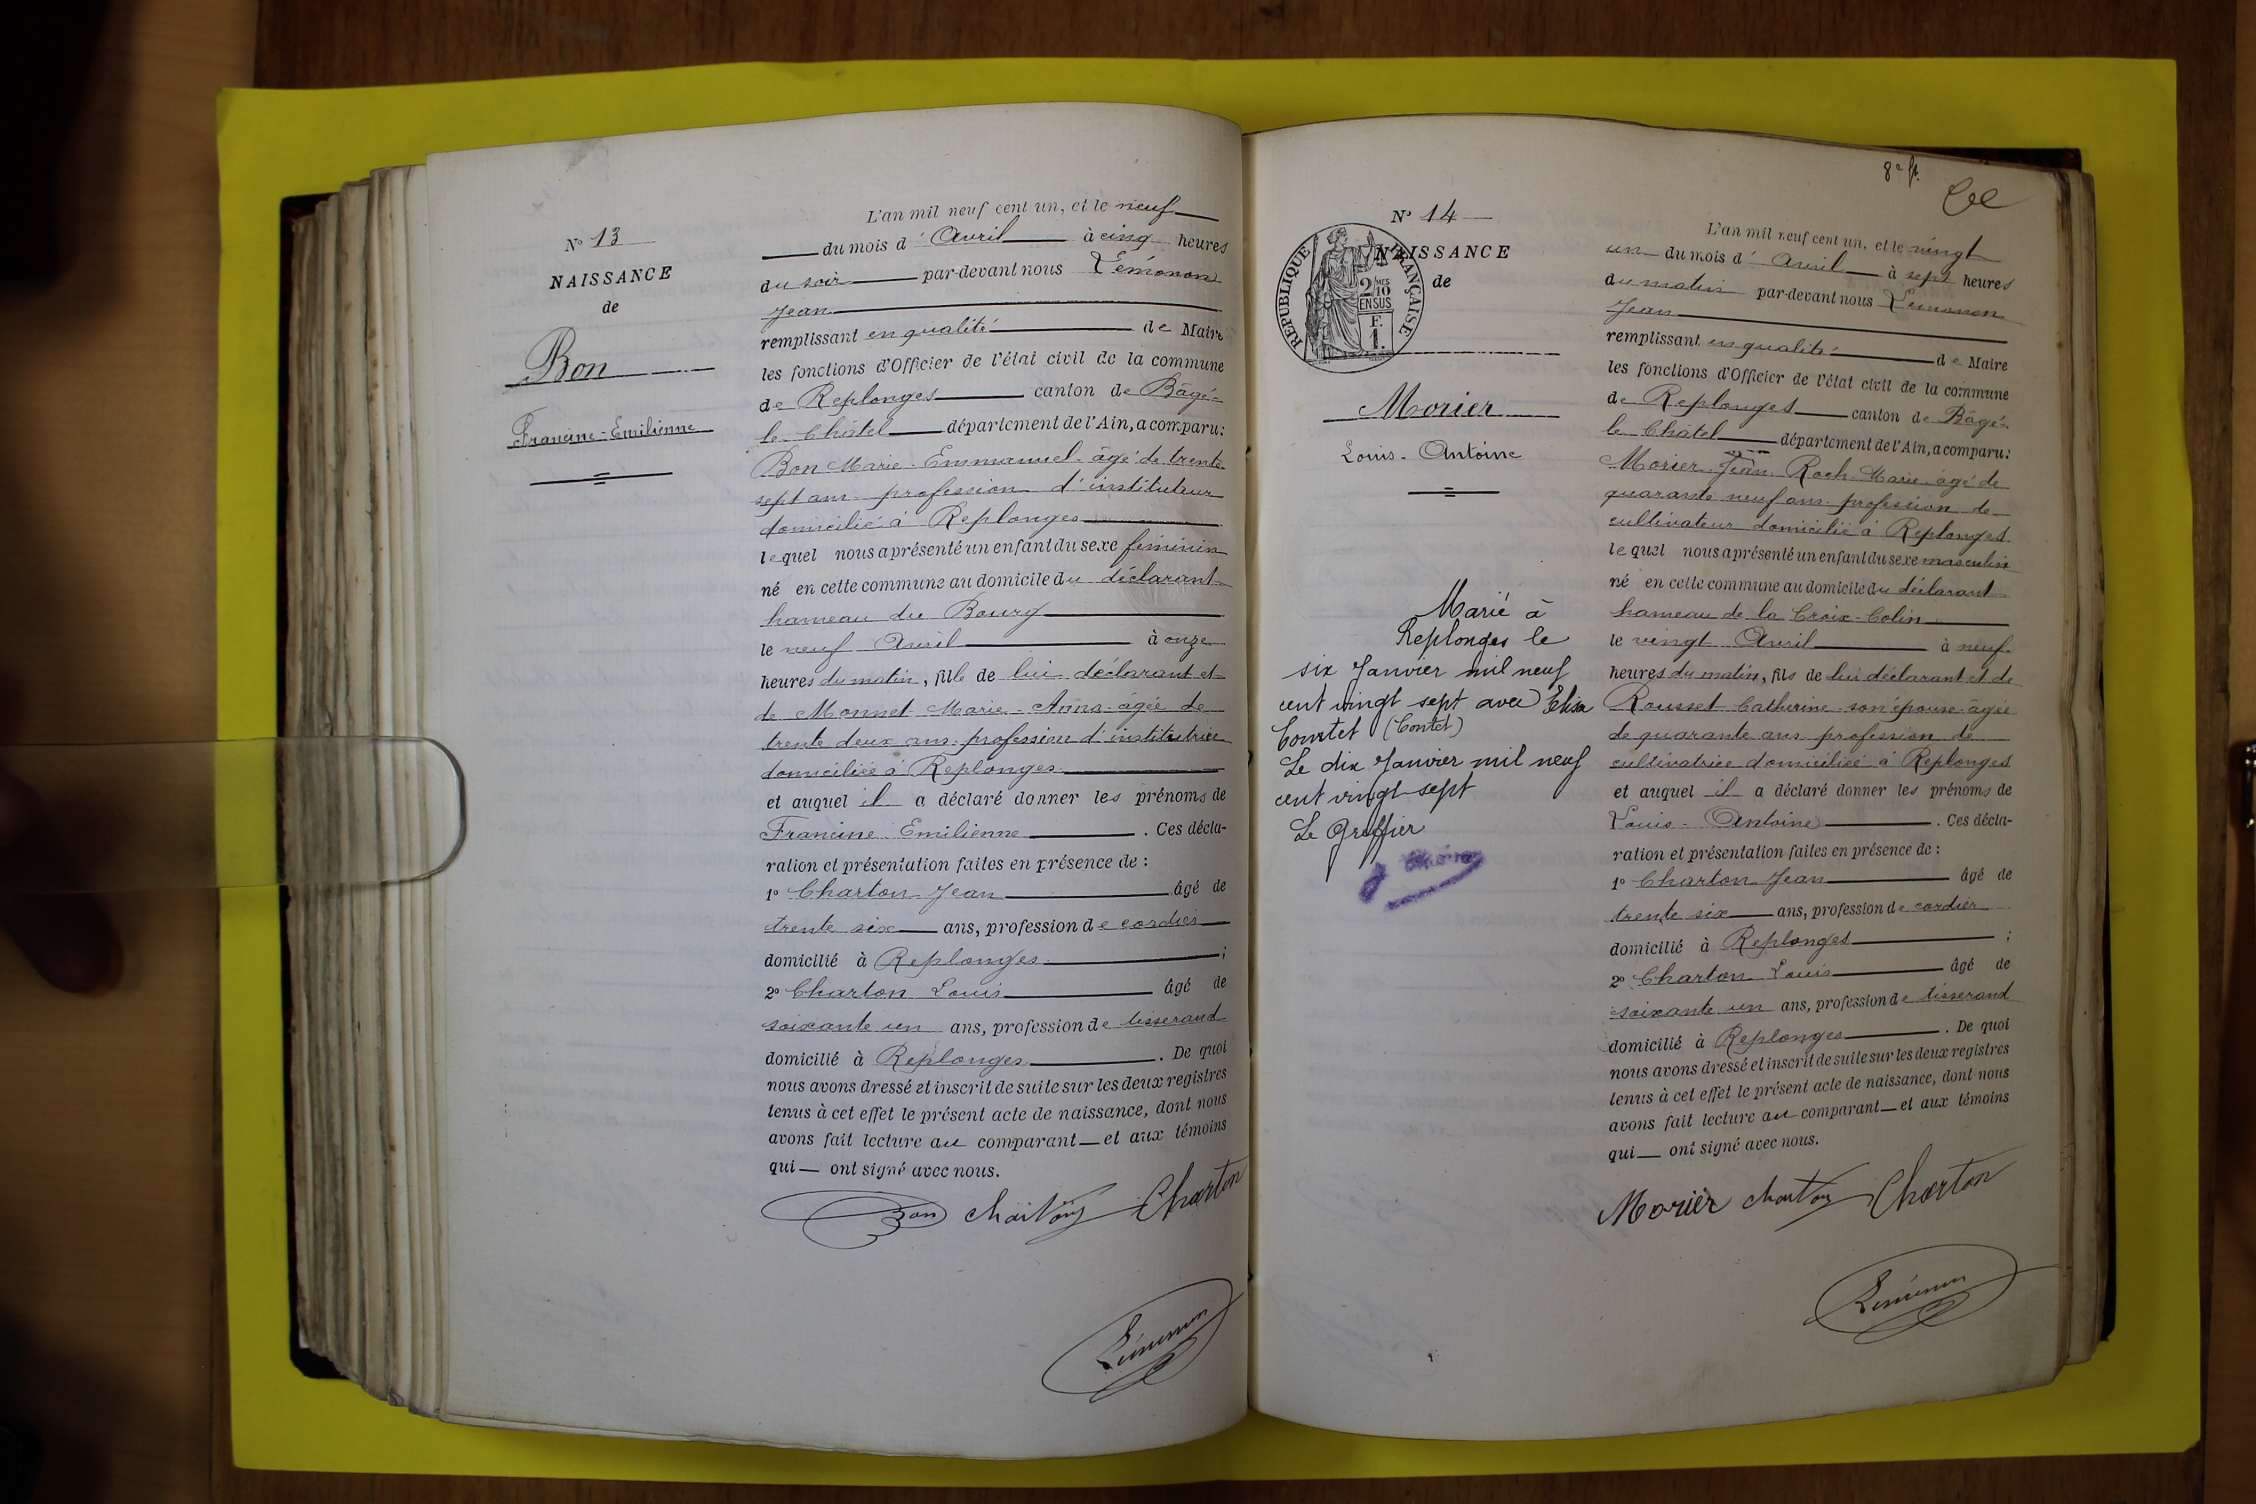 N° 13
NAISSANCE
de
Bon
Francine-Emilienne
L'an mil neuf cent un, et le neuf
du mois d'Avril à cinq heures
du soir par-devant nous Lémonon
Jean
remplissant en qualité de Maire
les fonctions d'Officier de l'état civil de la commune
de Replonges canton de Bâgé-
le Châtel département de l'Ain, a comparu:
Bon Marie-Emmanuel-âgé de trente-
sept ans profession d'instituteur
domicilié à Replonges
lequel nous a présenté un enfant du sexe féminin
né en cette commune au domicile du déclarant
hameau du Bourg
le neuf Avril à onze
heures du matin, fille de lui déclarant et
de Monnet Marie-Anna-âgée de
trente deux ans-profession d'institutrice
domiciliée à Replonges
et auquel il a déclaré donner les prénoms de
Francine Emilienne . Ces décla-
ration et présentation faites en présence de :
1° Charton Jean âgé de
trente six ans, profession de cordier
domicilié à Replonges ;
2° Charton Louis âgé de
soixante un ans, profession de tisserand
domicilié à Replonges . De quoi
nous avons dressé et inscrit de suite sur les deux registres
tenus à cet effet le présent acte de naissance, dont nous
avons fait lecture au comparant et aux témoins
qui ont signé avec nous.
Bon Charton Charton
Lémonon
8e ft.
N° 14
NAISSANCE
de
REPUBLIQUE FRANÇAISE
2/10 MES
EN SUS
F.
1.
Morier
Louis-Antoine
Marié à
Replonges le
six Janvier mil neuf
cent vingt sept avec Elisa
Courtet (Contet)
Le dix Janvier mil neuf
cent vingt-sept
Le Greffier
L'an mil neuf cent un, et le vingt
un du mois d'Avril à sept heures
du matin par-devant nous Lémonon
Jean
remplissant en qualité de Maire
les fonctions d'Officier de l'état civil de la commune
de Replonges canton de Bâgé-
le Châtel département de l'Ain, a comparu:
Morier Jean Roch-Marie-âgé de
quarante neuf ans-profession de
cultivateur domicilié à Replonges
lequel nous a présenté un enfant du sexe masculin
né en cette commune au domicile du déclarant
hameau de la Croix-Colin
le vingt Avril à neuf
heures du matin, fils de lui déclarant et de
Rousset Catherine-son épouse-âgée
de quarante ans profession de
cultivatrice domiciliée à Replonges
et auquel il a déclaré donner les prénoms de
Louis-Antoine . Ces décla-
ration et présentation faites en présence de :
1° Charton Jean âgé de
trente six ans, profession de cordier
domicilié à Replonges ;
2° Charton Louis âgé de
soixante un ans, profession de tisserand
domicilié à Replonges . De quoi
nous avons dressé et inscrit de suite sur les deux registres
tenus à cet effet le présent acte de naissance, dont nous
avons fait lecture au comparant et aux témoins
qui ont signé avec nous.
Morier Charton Charton
Lémonon